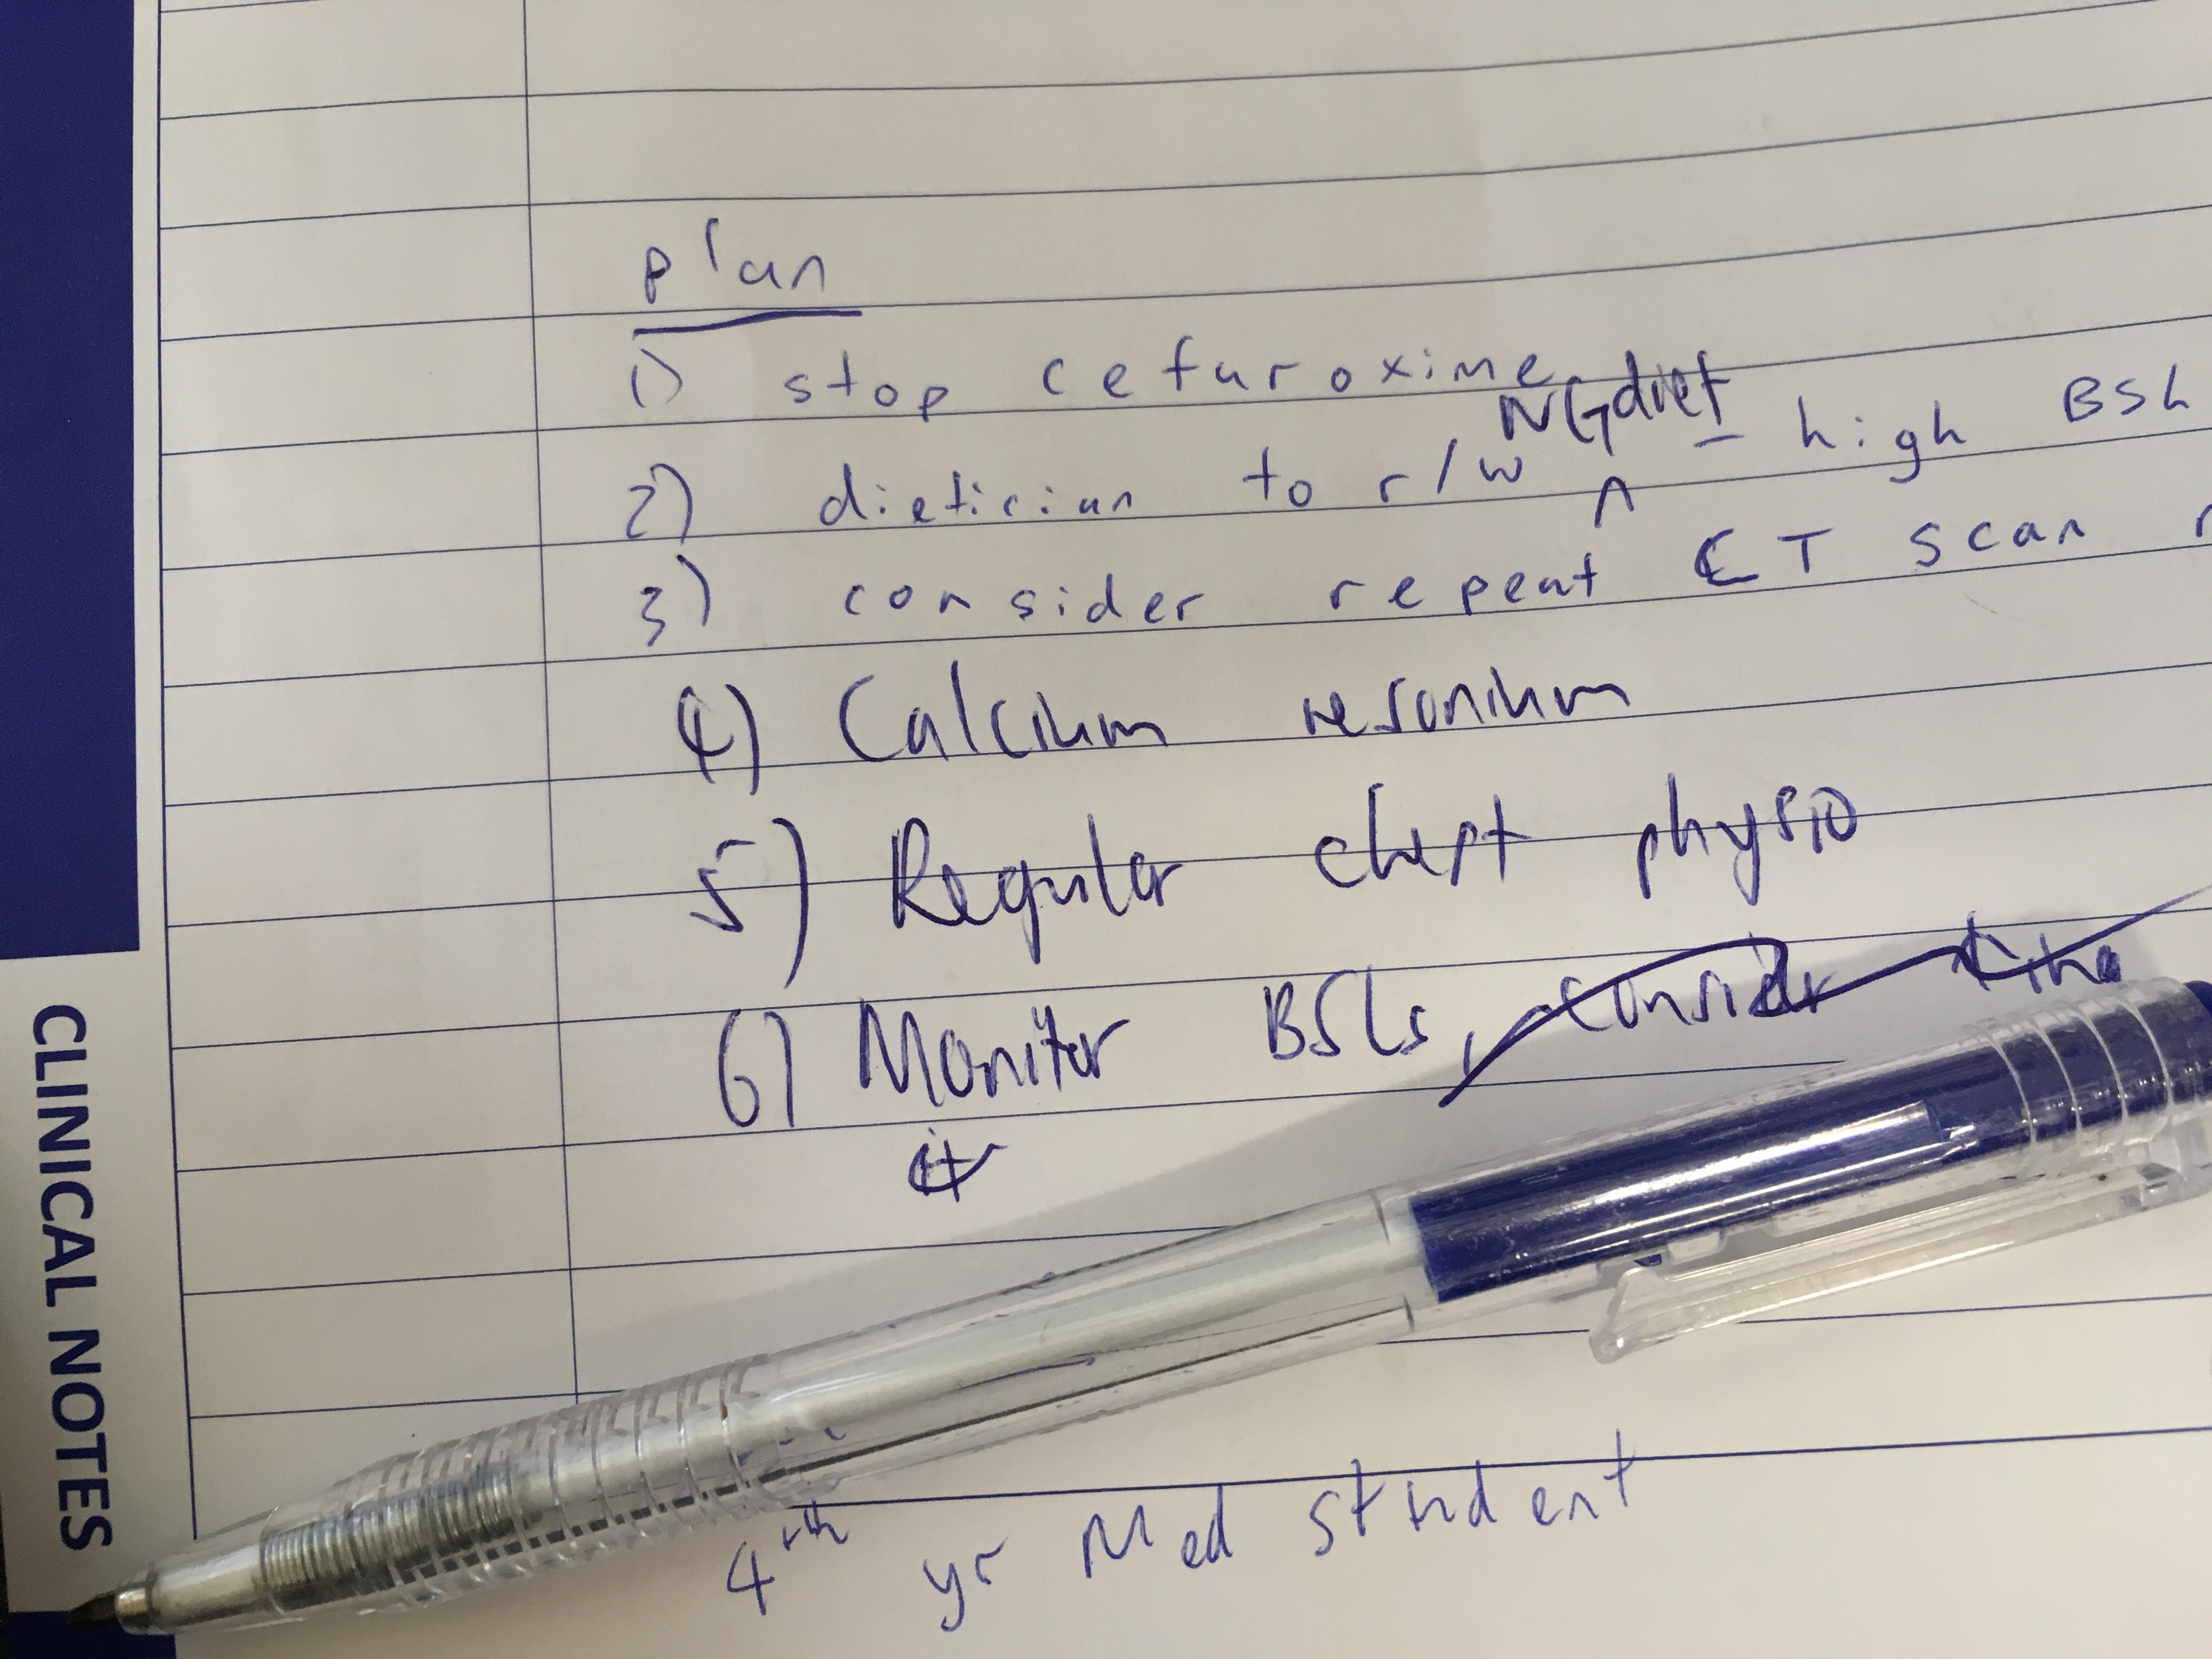 plan
1) stop cefuroxime
2) dietician to r/w NG diet - high BSL
3) consider repeat CT scan
4) Calcium resonium
5) Regular chest physio
6) Monitor BSLs, consider
4th yr Med student
CLINICAL NOTES